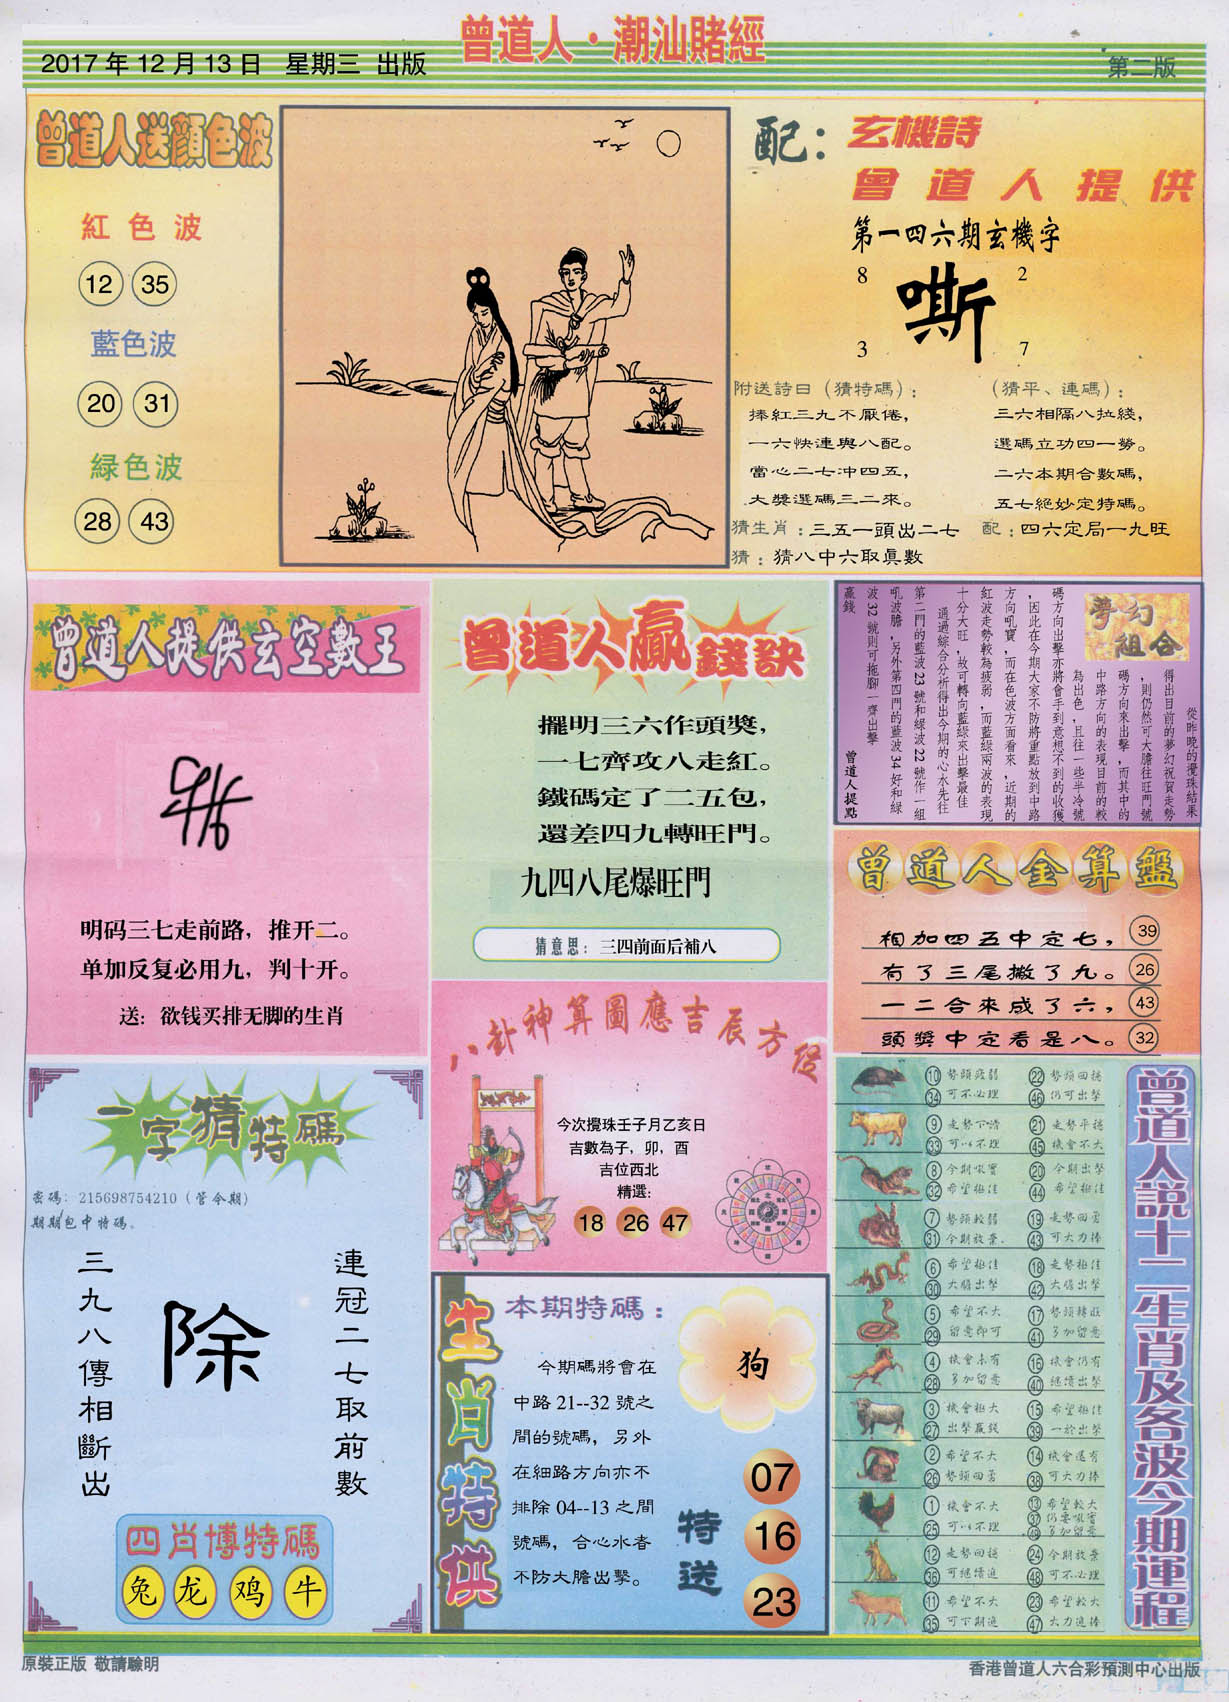 曾道人·潮汕賭經
2017年12月13日 星期三 出版
第二版
曾道人送顏色波
紅色波
12 35
藍色波
20 31
緑色波
28 43
配：玄機詩
曾道人提供
第一四六期玄機字
8 2
嘶
3 7
附送詩日（猜特碼）：
捧紅三九不厭倦，
一六快連與八配。
當心二七沖四五，
大獎選碼三二來。
（猜平、連碼）：
三六相隔八拉綫，
選碼立功四一勞。
二六本期合數碼，
五七絕妙定特碼。
猜生肖：三五一頭出二七 配：四六定局一九旺
猜：猜八中六取真數
曾道人提供玄空數王
明码三七走前路，推开二。
单加反复必用九，判十开。
送：欲钱买排无脚的生肖
曾道人贏錢訣
擺明三六作頭獎，
一七齊攻八走紅。
鐵碼定了二五包，
還差四九轉旺門。
九四八尾爆旺門
猜意思：三四前面后補八
夢幻
組合
從昨晚的攪珠結果
得出目前的夢幻祝賀走勢
，則仍然可大膽往旺門號
碼方向來出擊，而其中的
中路方向的表現目前的較
為出色，且往一些半冷號
碼方向出擊亦將會手到意想不到的收獲
，因此在今期大家不防將重點放到中路
方向吼寶，而在色波方面看來，近期的
紅波走勢較為疲弱，而藍綠兩波的表現
十分大旺，故可轉向藍綠來出擊最佳
通過綜合分析得出今期的心水先往
第二門的藍波23號和綠波22號作一組
吼波膽，另外第四門的藍波34好和綠
波32號則可拖腳一齊出擊
贏錢
曾道人提點
曾道人金算盤
相加四五中定七， 39
有了三尾撇了九。 26
一二合來成了六， 43
頭獎中定看是八。 32
一字猜特碼
密碼：215698754210（管今期）
期期包中特碼。
連冠二七取前數
除
三九八傳相斷出
四肖博特碼
兔 龙 鸡 牛
八卦神算圖應吉辰方位
今次攪珠壬子月乙亥日
吉數為子，卯，酉
吉位西北
精選:
18 26 47
生肖特供
本期特碼：
狗
今期碼將會在
中路21--32號之
間的號碼，另外
在細路方向亦不
排除04--13之間
號碼，合心水者
不防大膽出擊。
特送
07
16
23
曾道人説十二生肖及各波今期運程
10 勢頭疲弱 22 勢頭回穩
34 可不必理 46 仍可出擊
9 走勢下滑 21 走勢平穩
33 可以不理 45 機會不大
8 今期吼實 20 今期出擊
32 希望極佳 44 希望極佳
7 勢頭較弱 19 走勢回勇
31 今期放棄 43 可大力捧
6 希望極佳 18 走勢極佳
30 大膽出擊 42 大膽出擊
5 希望不大 17 勢頭轉旺
29 留意即可 41 多加留意
4 機會未有 16 機會仍有
28 多加留意 40 繼續出擊
3 機會極大 15 希望極佳
27 出擊贏錢 39 一於出擊
2 希望不大 14 機會還有
26 勢頭回勇 38 可大力捧
1 機會不大 13 希望較大
25 可以不理 37 仍要吼實
49 多加留意
12 走勢回穩 24 今期放棄
36 可繼續追 48 可不必理
11 希望不大 23 希望較大
35 可下期追 47 大力追捧
原裝正版 敬請驗明
香港曾道人六合彩預測中心出版